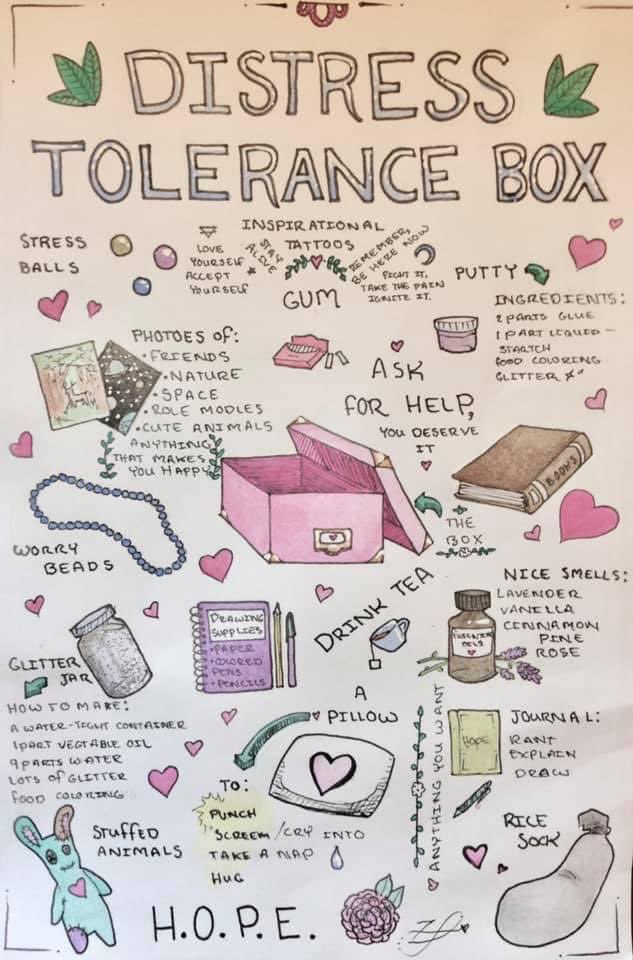 DISTRESS
TOLERANCE BOX
STRESS
BALLS
LOVE
YOURSELF
ACCEPT
YOURSELF
INSPIRATIONAL
TATTOOS
STAY
ALIVE
REMEMBER,
BE HERE NOW
FIGHT IT,
TAKE THE PAIN
IGNITE IT.
PUTTY
INGREDIENTS:
2 PARTS GLUE
1 PART LIQUID-
STARTCH
FOOD COLORING
GLITTER
GUM
PHOTOES OF:
•FRIENDS
•NATURE
•SPACE
•ROLE MODLES
•CUTE ANIMALS
ANYTHING
THAT MAKES
YOU HAPPY
ASK
FOR HELP,
YOU DESERVE
IT
BOOKS
THE
BOX
WORRY
BEADS
DRINK TEA
NICE SMELLS:
LAVENDER
VANILLA
CINNAMON
PINE
ROSE
ESSENTIAL
OILS
DRAWING
SUPPLIES
•PAPER
•COLORED
PENS
•PENCILS
GLITTER
JAR
HOW TO MAKE:
A WATER-TIGHT CONTAINER
1 PART VEGTABLE OIL
9 PARTS WATER
LOTS OF GLITTER
FOOD COLORING
A
PILLOW
TO:
PUNCH
SCREEM/CRY INTO
TAKE A NAP
HUG
ANYTHING YOU WANT
HOPE
JOURNAL:
RANT
EXPLAIN
DRAW
STUFFED
ANIMALS
RICE
SOCK
H.O.P.E.